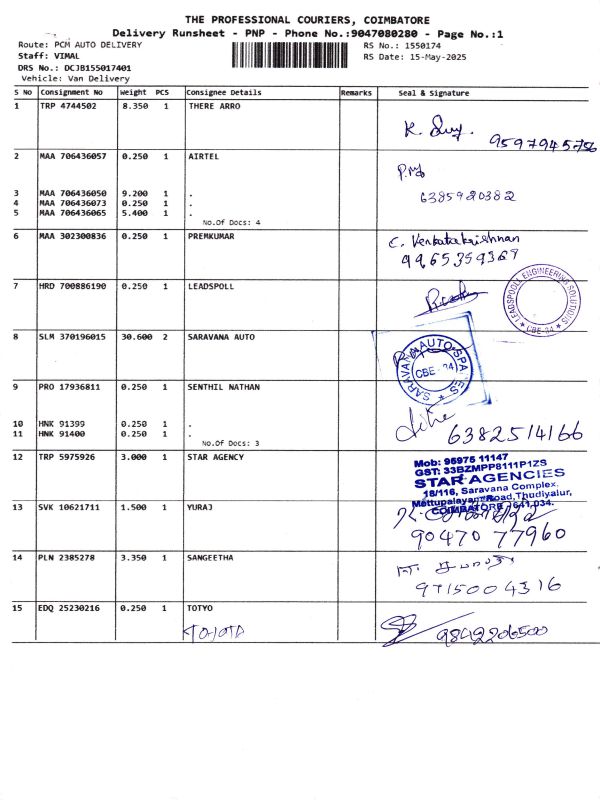 THE PROFESSIONAL COURIERS, COIMBATORE
Delivery Runsheet - PNP - Phone No.:9047080280 - Page No.:1
Route: PCM AUTO DELIVERY
RS No.: 1550174
Staff: VIMAL
RS Date: 15-May-2025
DRS No.: DCJB155017401
Vehicle: Van Delivery
S No Consignment No Weight PCS Consignee Details Remarks Seal & Signature
1 TRP 4744502 8.350 1 THERE ARRO
9597945756
2 MAA 706436057 0.250 1 AIRTEL
3 MAA 706436050 9.200 1 .
6385920382
4 MAA 706436073 0.250 1 .
5 MAA 706436065 5.400 1 .
No.Of Docs: 4
6 MAA 302300836 0.250 1 PREMKUMAR
C. Venkatakrishnan
9965359369
7 HRD 700886190 0.250 1 LEADSPOLL
LEADSPOOLL ENGINEERING SOLUTIONS
★ CBE-34 ★
8 SLM 370196015 30.600 2 SARAVANA AUTO
SARAVANA AUTO SPARES
CBE - 34
9 PRO 17936811 0.250 1 SENTHIL NATHAN
10 HNK 91399 0.250 1 .
11 HNK 91400 0.250 1 .
6382514166
No.Of Docs: 3
12 TRP 5975926 3.000 1 STAR AGENCY
Mob: 95975 11147
GST: 33BZMPP8111P1ZS
STAR AGENCIES
18/116, Saravana Complex,
Mettupalayam Road, Thudiyalur,
COIMBATORE - 641 034.
13 SVK 10621711 1.500 1 YURAJ
90470 77960
14 PLN 2385278 3.350 1 SANGEETHA
9715004316
15 EDQ 25230216 0.250 1 TOTYO
TOYOTA
9842206500